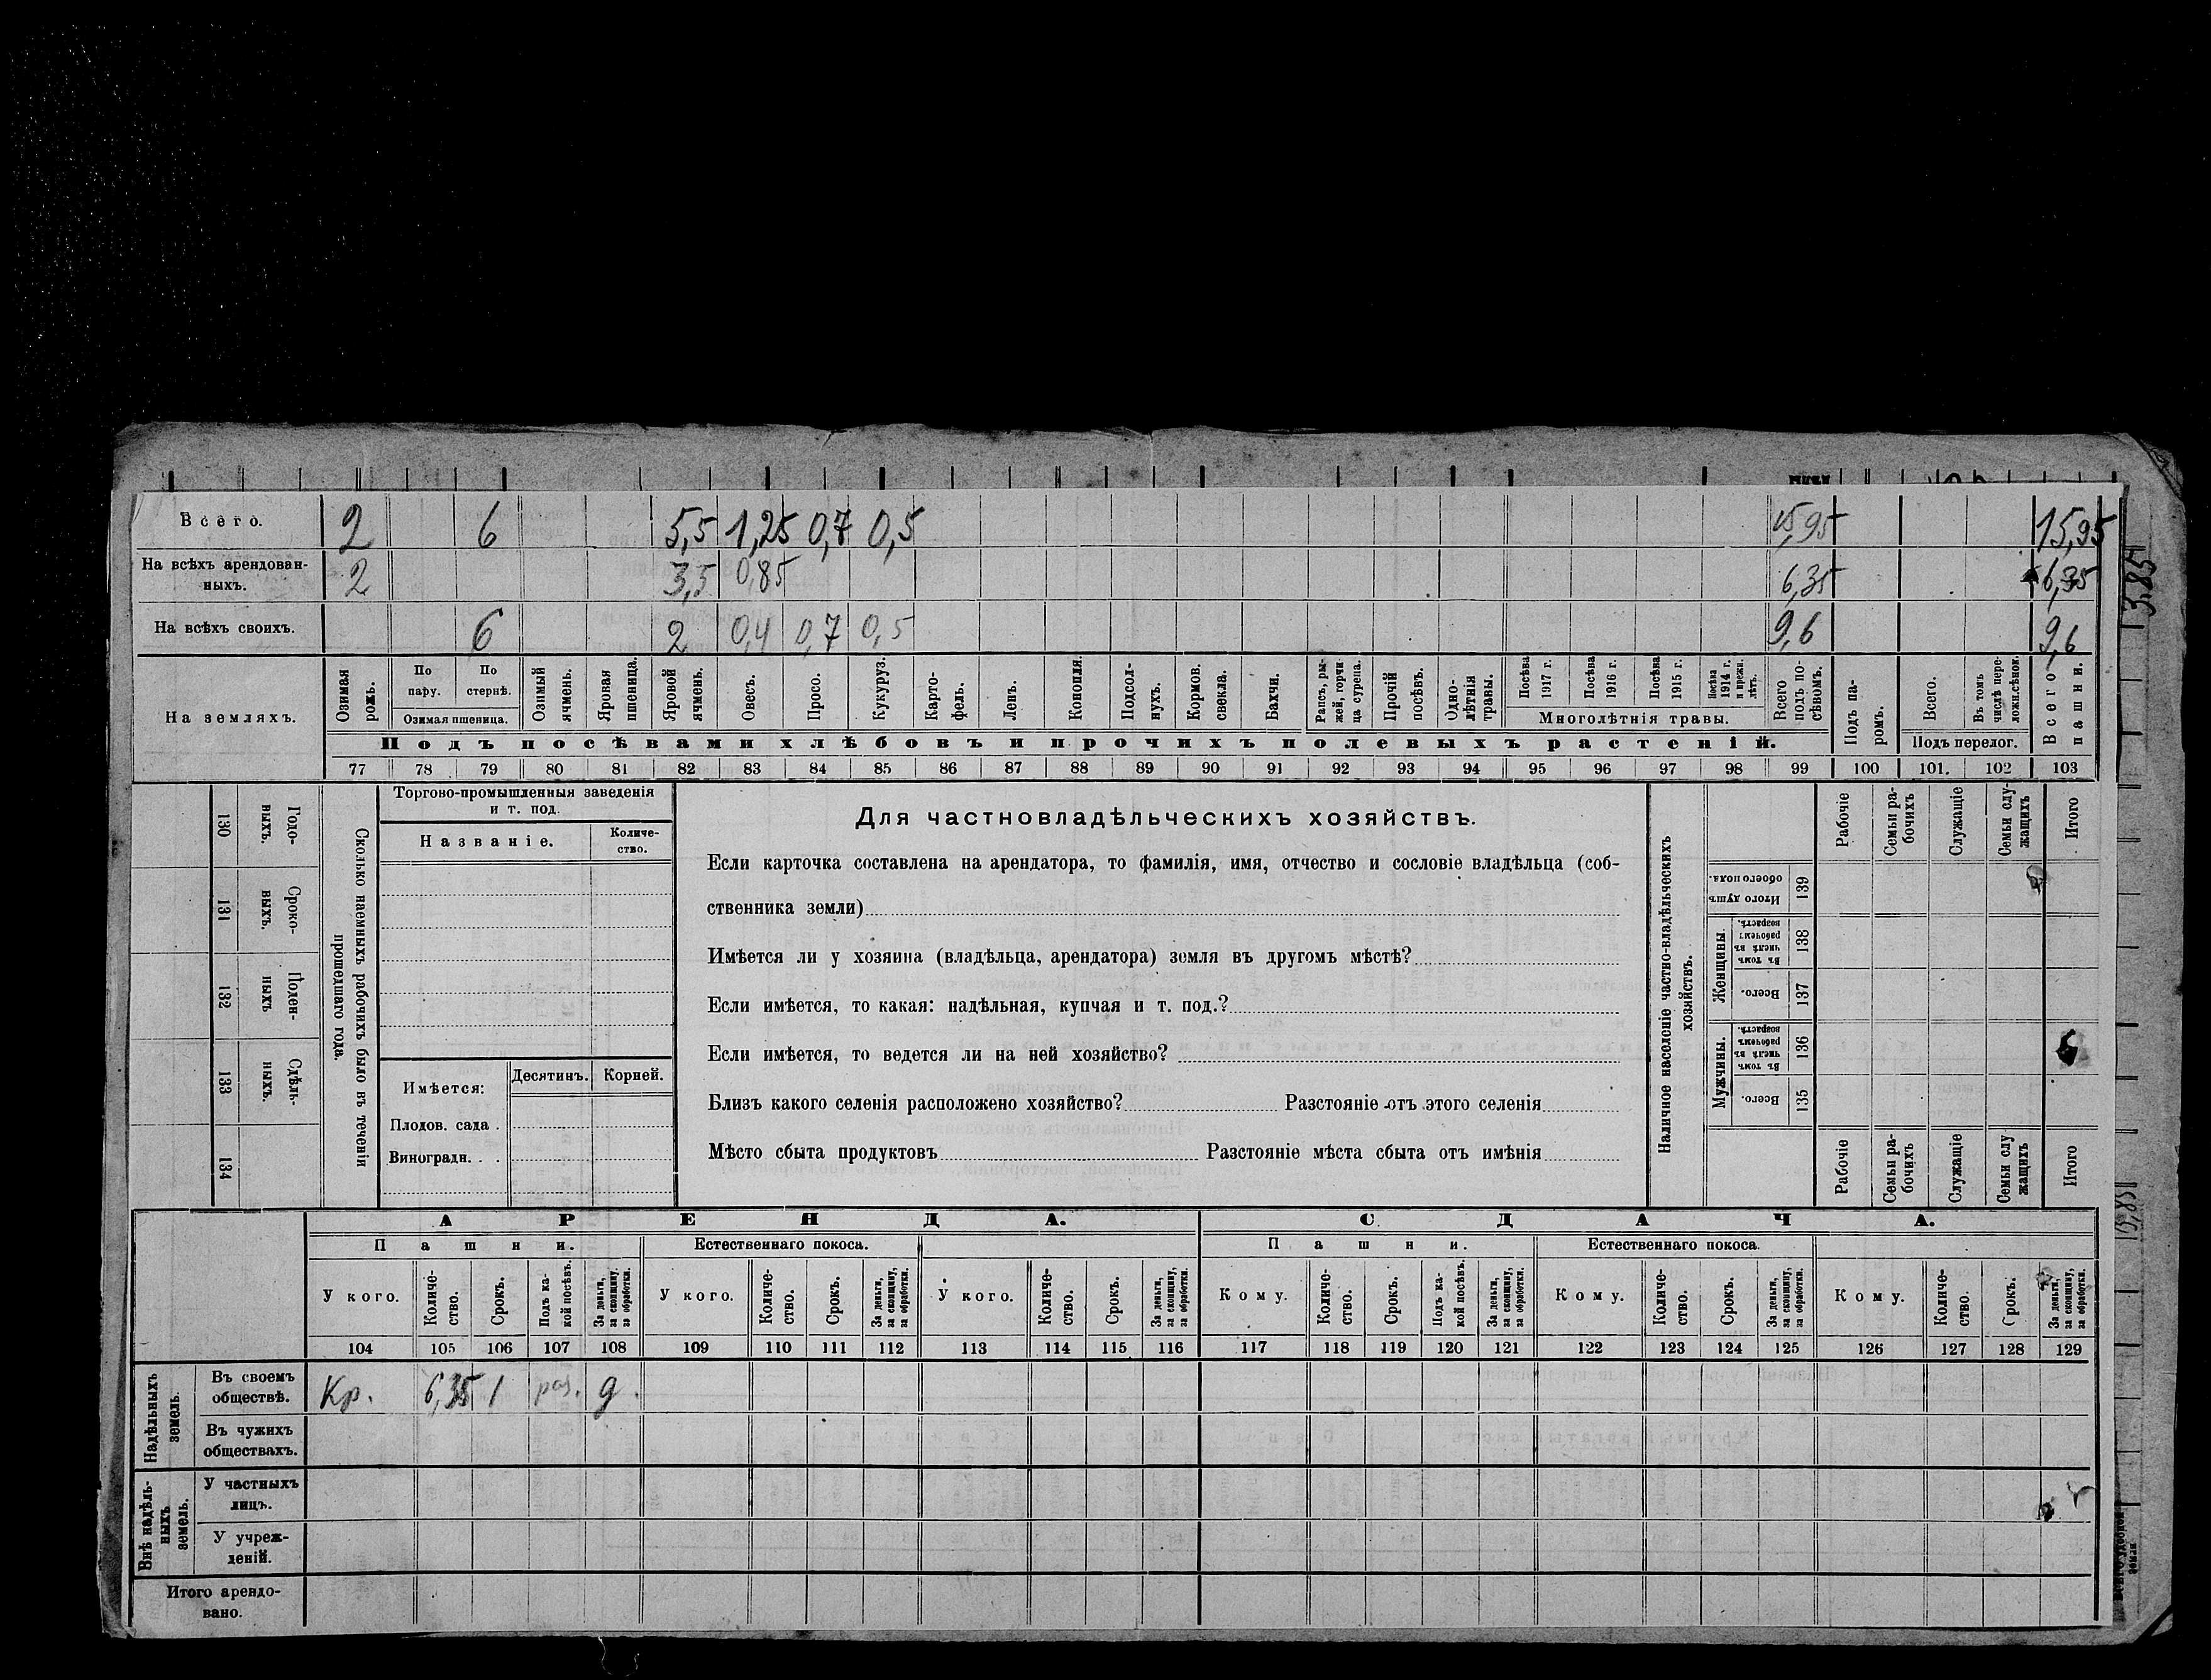 Всего. 2 6 5,5 1,25 0,7 0,5 15,95 15,95
На всѣхъ арендован-
ныхъ. 2 3,5 0,85 6,35 6,35
На всѣхъ своихъ. 6 2 0,4 0,7 0,5 9,6 9,6
3,85
На земляхъ.
Озимая рожь.
По пару.
По стернѣ.
Озимая пшеница.
Озимый ячмень.
Яровая пшеница.
Яровой ячмень.
Овесъ.
Просо.
Кукуруз.
Карто-
фель.
Ленъ.
Конопля.
Подсол-
нухъ.
Кормов. свекла.
Бахчи.
Рапсъ, ры-
жей, горчи-
ца сурепа.
Прочій посѣвъ.
Одно-
лѣтнія травы.
Посѣва 1917 г.
Посѣва 1916 г.
Посѣва 1915 г.
Посѣва 1914 г. и прежн. лѣтъ.
Многолѣтнія травы.
Всего подъ по-
сѣвомъ.
Подъ па-
ромъ.
Всего.
Въ томъ числѣ пере-
ложн.сѣнок.
Подъ перелог.
Всего пашни.
Подъ посѣвами хлѣбовъ и прочихъ полевыхъ растеній.
77 78 79 80 81 82 83 84 85 86 87 88 89 90 91 92 93 94 95 96 97 98 99 100 101. 102 103
130 Годо-
ныхъ.
131 Сроко-
выхъ.
132 Поден-
ныхъ
133 Сдѣль-
ныхъ.
134
Сколько наемныхъ рабочихъ было въ теченіи
прошедшаго года.
Торгово-промышленныя заведенія
и т. под.
Названіе.
Количе-
ство.
Имѣется: Десятинъ. Корней.
Плодов. сада .
Виноградн. . .
Для частновладѣльческихъ хозяйствъ.
Если карточка составлена на арендатора, то фамилія, имя, отчество и сословіе владѣльца (соб-
ственника земли)
Имѣется ли у хозяина (владѣльца, арендатора) земля въ другомъ мѣстѣ?
Если имѣется, то какая: надѣльная, купчая и т. под.?
Если имѣется, то ведется ли на ней хозяйство?
Близъ какого селенія расположено хозяйство? Разстояніе отъ этого селенія
Мѣсто сбыта продуктовъ Разстояніе мѣста сбыта отъ имѣнія
Наличное населеніе частно-владѣльческихъ
хозяйствъ.
Рабочіе
Семьи ра-
бочихъ
Служащіе
Семьи слу-
жащихъ
Итого
Итого душъ обоего пола. 139
Женщины.
Въ томъ числѣ въ рабочемъ возрастѣ. 138
Всего. 137
Мужчины.
Въ томъ числѣ въ рабочемъ возрастѣ. 136
Всего. 135
Рабочіе
Семьи ра-
бочихъ
Служащіе
Семьи слу
жащихъ
Итого
АРЕНДА. СДАЧА.
Пашни. Естественнаго покоса. Пашни. Естественнаго покоса.
У кого.
Количе-
ство.
Срокъ.
Подъ ка-
кой посѣвъ.
За деньги, за скопщину, за обработки.
У кого.
Количе-
ство.
Срокъ.
За деньги, за скопщину, за обработки.
У кого.
Количе-
ство.
Срокъ.
За деньги, за скопщину, за обработки.
Кому.
Количе-
ство.
Срокъ.
Подъ ка-
кой посѣвъ.
За деньги, за скопщину, за обработки.
Кому.
Количе-
ство.
Срокъ.
За деньги, за скопщину, за обработки.
Кому.
Количе-
ство.
Срокъ.
За деньги, за скопщину, за обработки.
104 105 106 107 108 109 110 111 112 113 114 115 116 117 118 119 120 121 122 123 124 125 126 127 128 129
Надѣльныхъ
земель.
Въ своемъ
обществѣ. Кр. 6,35 1 раз. д.
Въ чужихъ
обществахъ.
Внѣ надѣль-
ныхъ
земель.
У частныхъ
лицъ.
У учреж-
деній.
Итого арендо-
вано.